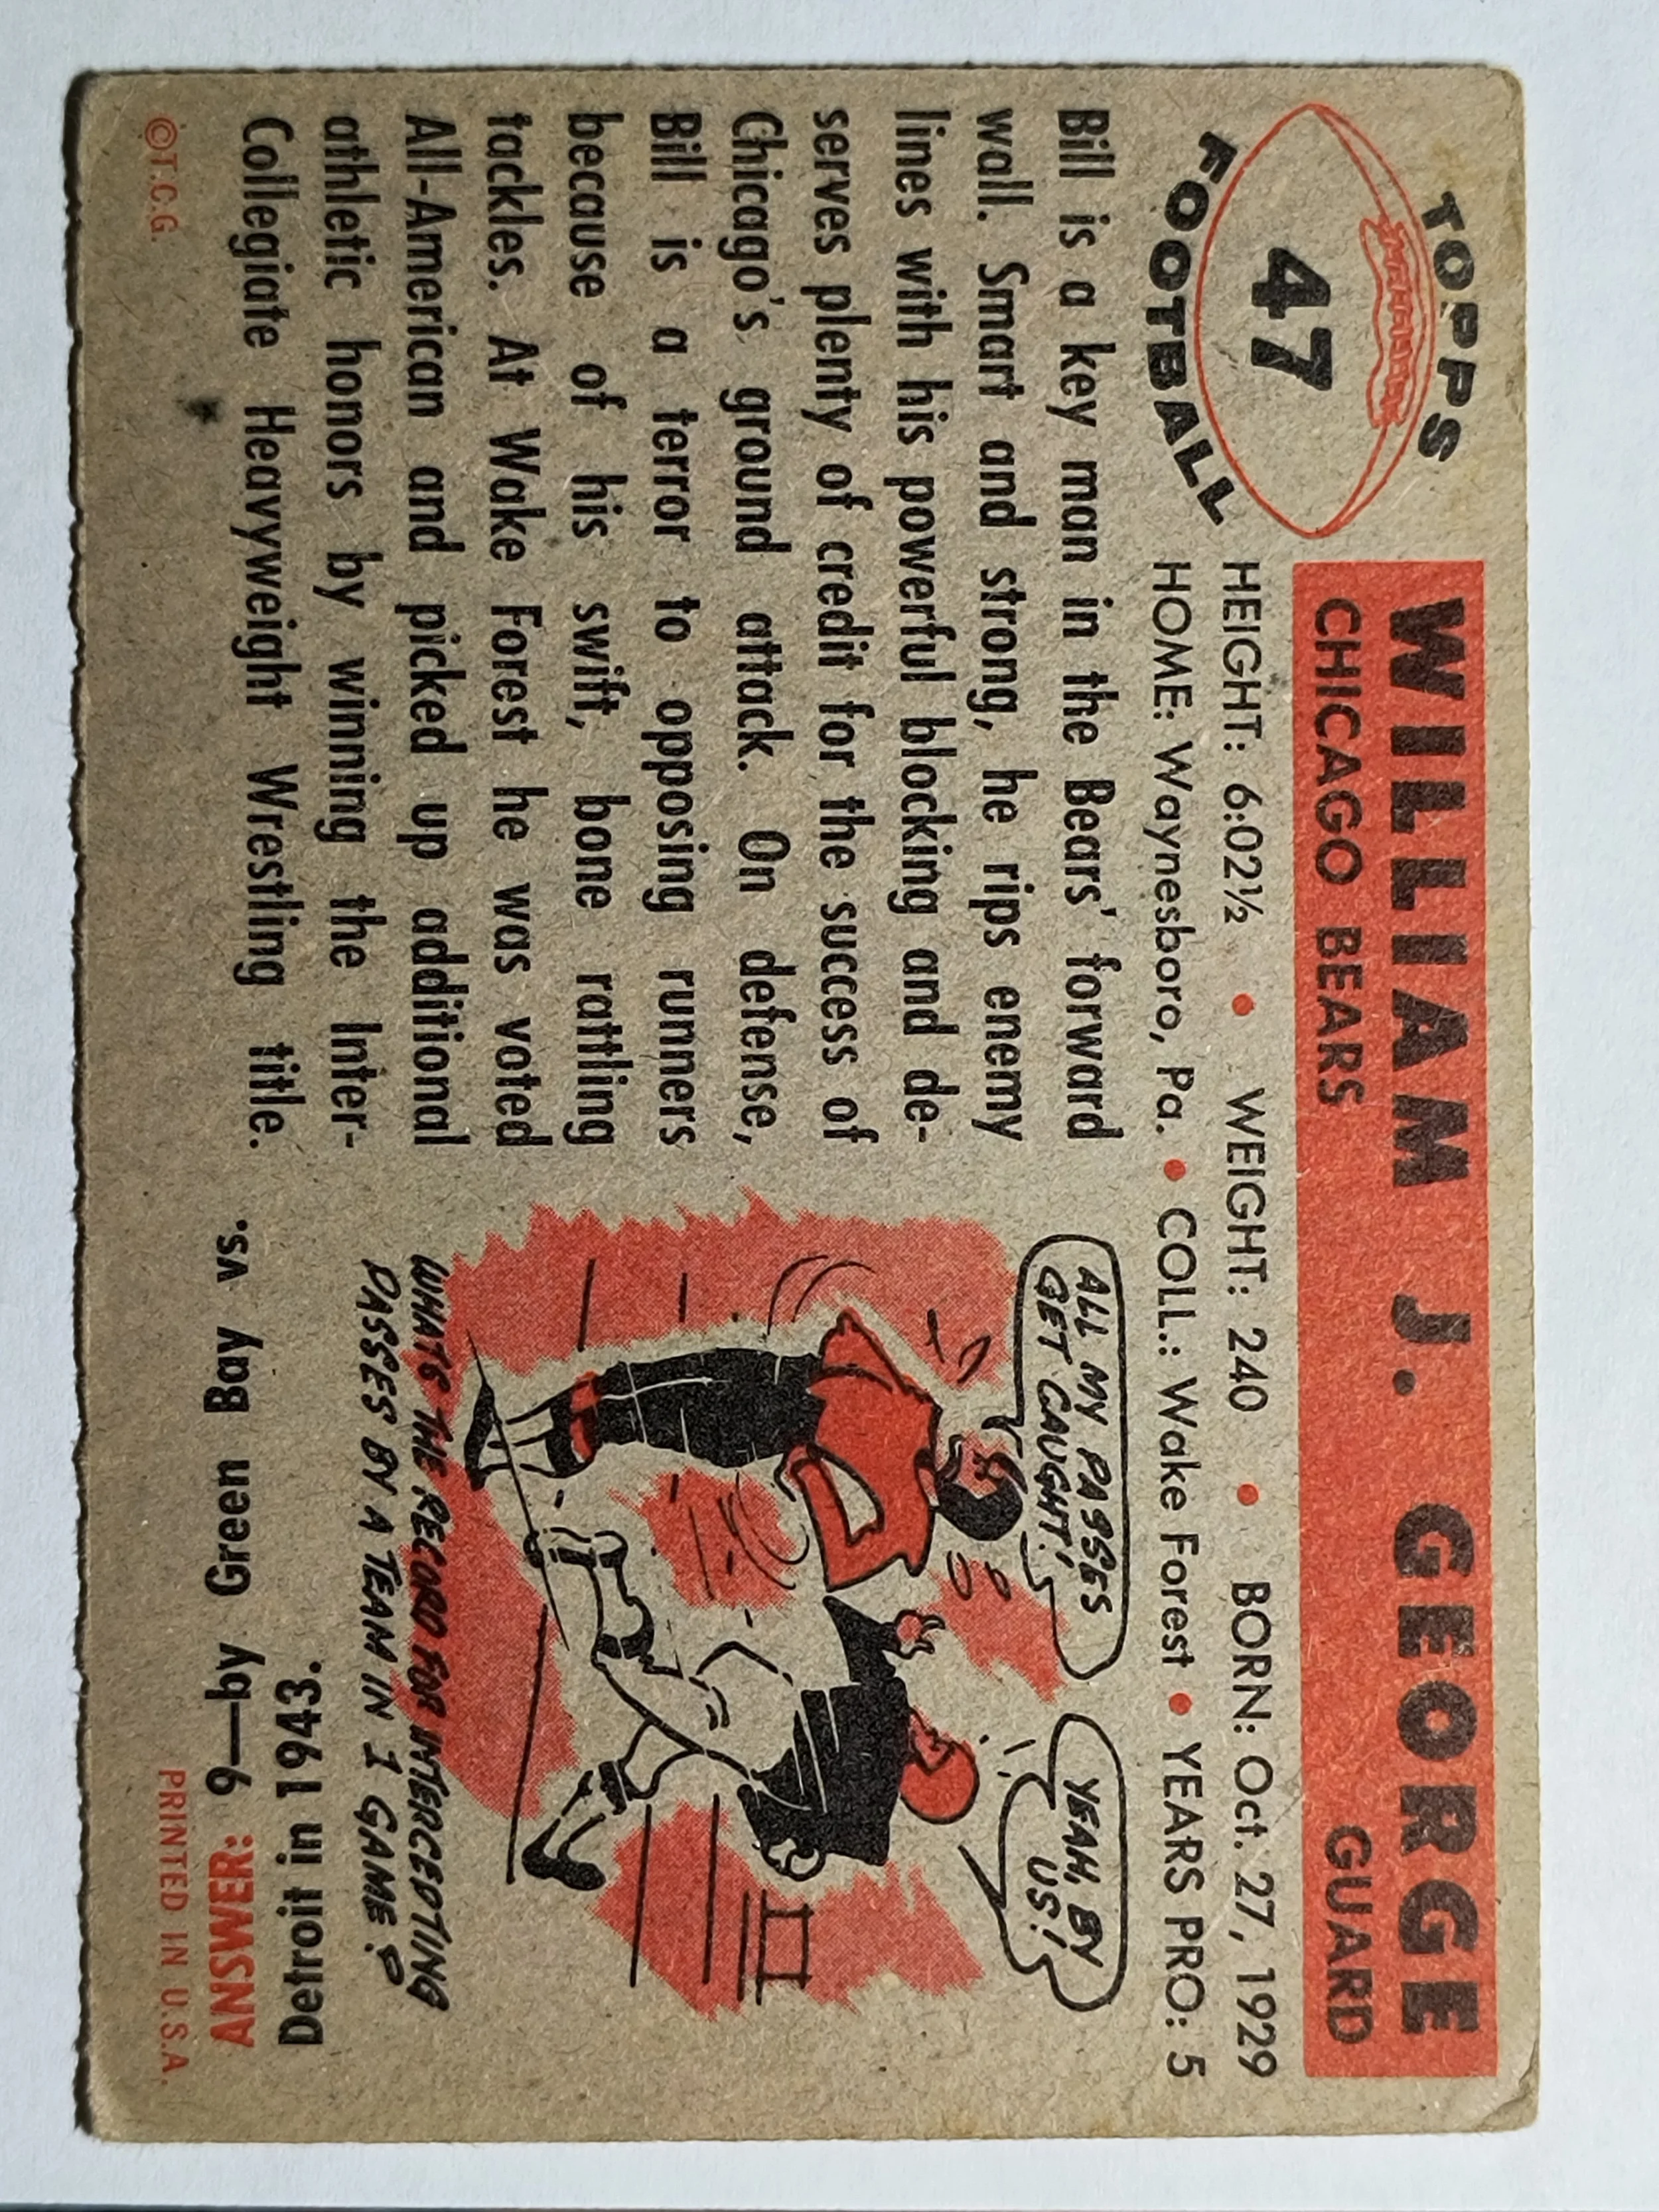 TOPPS
47
FOOTBALL
WILLIAM J. GEORGE
CHICAGO BEARS GUARD
HEIGHT: 6:02½ • WEIGHT: 240 • BORN: Oct. 27, 1929
HOME: Waynesboro, Pa. • COLL.: Wake Forest • YEARS PRO: 5
Bill is a key man in the Bears' forward
wall. Smart and strong, he rips enemy
lines with his powerful blocking and de-
serves plenty of credit for the success of
Chicago's ground attack. On defense,
Bill is a terror to opposing runners
because of his swift, bone rattling
tackles. At Wake Forest he was voted
All-American and picked up additional
athletic honors by winning the Inter-
Collegiate Heavyweight Wrestling title.
ALL MY PASSES
GET CAUGHT!
YEAH, BY
US!
WHATS THE RECORD FOR INTERCEPTING
PASSES BY A TEAM IN 1 GAME?
ANSWER: 9—by Green Bay vs.
Detroit in 1943.
©T.C.G.
PRINTED IN U.S.A.